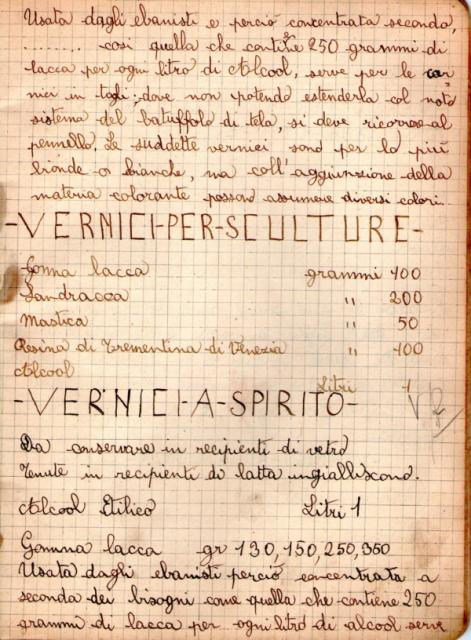 Usata dagli ebanisti e perciò concentrata secondo,
......... così quella che contiene 250 grammi di
lacca per ogni litro di Alcool, serve per le cor-
nici in togli; dove non potendo estenderla col noto
sistema del batuffolo di tela, si deve ricorrere al
pennello. Le suddette vernici sono per lo più
bionde o bianche, ma coll'aggiunzione della
materia colorante possono assumere diversi colori..
-VERNICI-PER-SCULTURE-
Gomma lacca grammi 100
Sandracca " 200
Mastica " 50
Resina di Trementina di Venezia " 100
Alcool Litri 1
-VERNICI-A-SPIRITO-
Da conservare in recipienti di vetro
Tenute in recipienti di latta ingialliscono.
Alcool Etilico Litri 1
Gomma lacca gr 130,150,250,350
Usata dagli ebanisti perciò concentrata a
seconda dei bisogni come quella che contiene 250
grammi di lacca per ogni litro di alcool serve